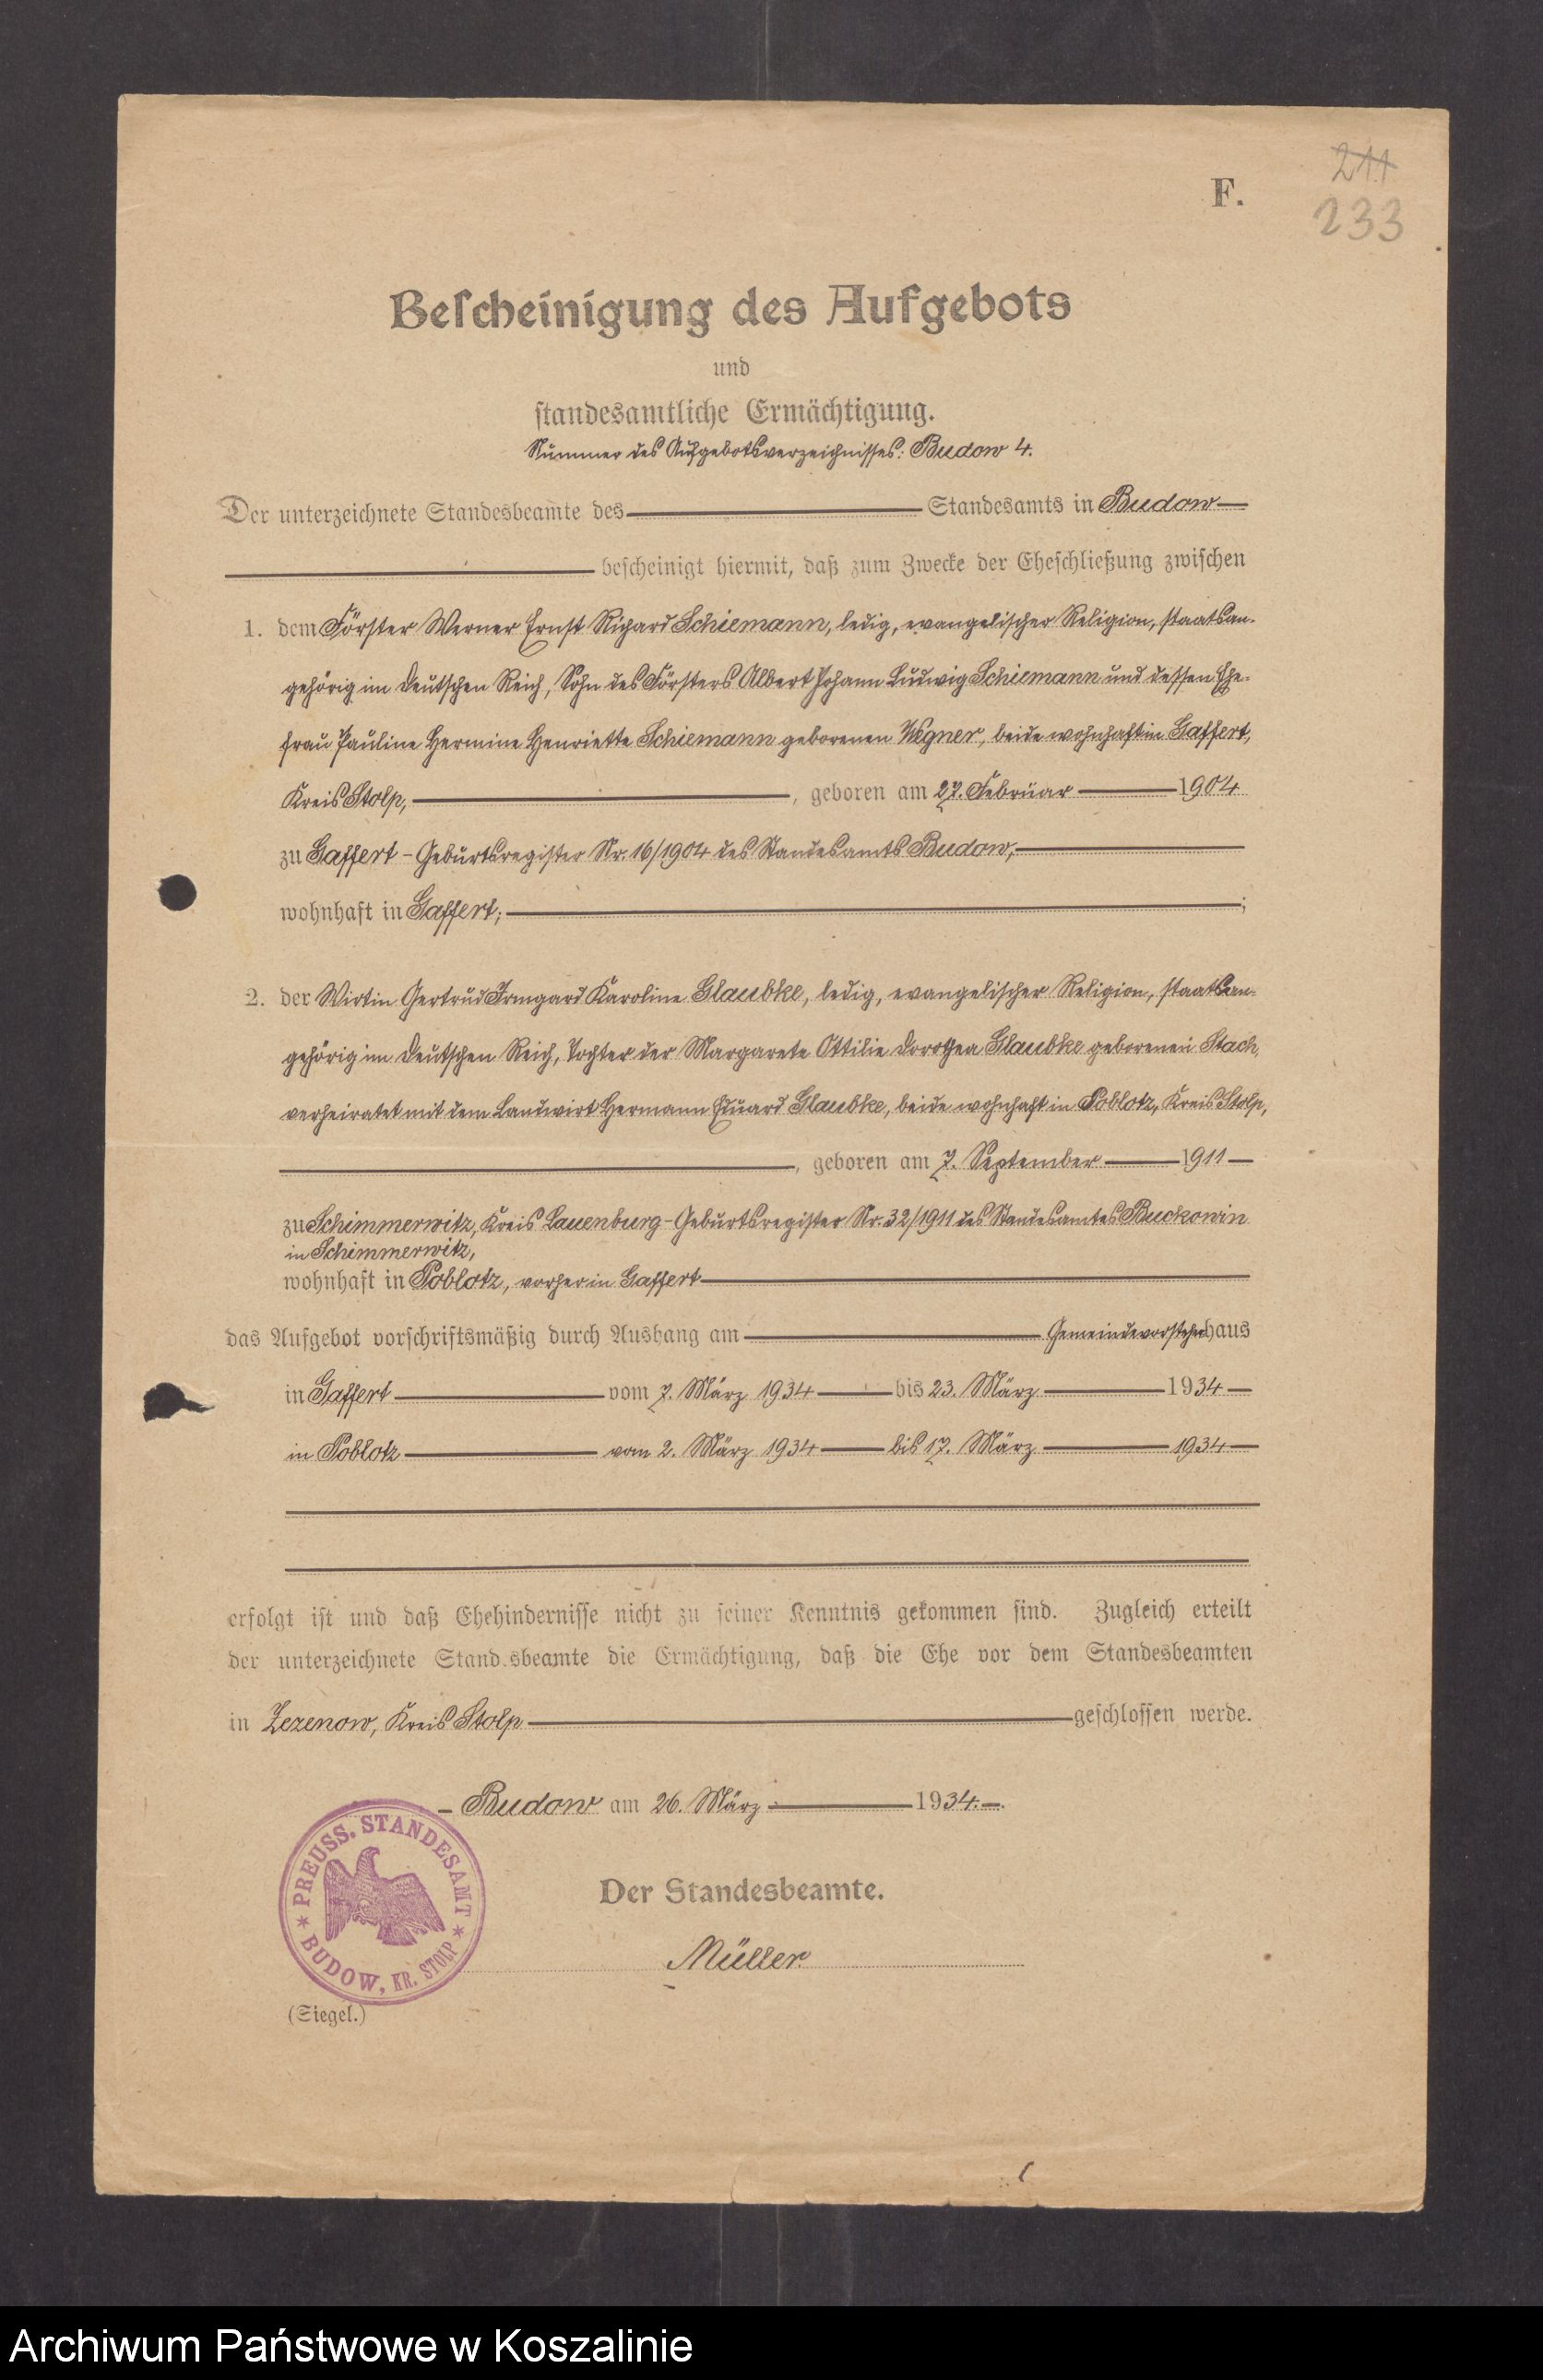 211
233
F.
Bescheinigung des Aufgebots
und
standesamtliche Ermächtigung.
Nummer des Aufgebotsverzeichnisses: Budow 4.
Der unterzeichnete Standesbeamte des Standesamts in Budow
bescheinigt hiermit, daß zum Zwecke der Eheschließung zwischen
1. dem Förster Werner Ernst Richard Schiemann, ledig, evangelischer Religion, staatsan-
gehörig im Deutschen Reich, Sohn des Försters Albert Johann Ludwig Schiemann und dessen Ehe-
frau Pauline Hermine Henriette Schiemann geborenen Wegner, beide wohnhaft in Gaffert,
Kreis Stolp, , geboren am 27. Februar 1904
zu Gaffert - Geburtsregister Nr. 16/1904 des Standesamts Budow,
wohnhaft in Gaffert; ;
2. der Wirtin Gertrud Irmgard Karoline Glaubke, ledig, evangelischer Religion, staatsan-
gehörig im Deutschen Reich, Tochter der Margarete Ottilie Dorothea Glaubke geborenen Stach,
verheiratet mit dem Landwirt Hermann Eduard Glaubke, beide wohnhaft in Poblotz, Kreis Stolp,
, geboren am 7. September 1911
zu Schimmerwitz, Kreis Lauenburg - Geburtsregister Nr. 32/1911 des Standesamtes Buckowin
in Schimmerwitz,
wohnhaft in Poblotz, vorher in Gaffert
das Aufgebot vorschriftsmäßig durch Aushang am Gemeindevorsteherhaus
in Gaffert vom 7. März 1934 bis 23. März 1934
in Poblotz vom 2. März 1934 bis 17. März 1934
erfolgt ist und daß Ehehindernisse nicht zu seiner Kenntnis gekommen sind. Zugleich erteilt
der unterzeichnete Standesbeamte die Ermächtigung, daß die Ehe vor dem Standesbeamten
in Zezenow, Kreis Stolp geschlossen werde.
Budow am 26. März 1934.
PREUSS. STANDESAMT
BUDOW, KR. STOLP
Der Standesbeamte.
Müller.
(Siegel.)
Archiwum Państwowe w Koszalinie